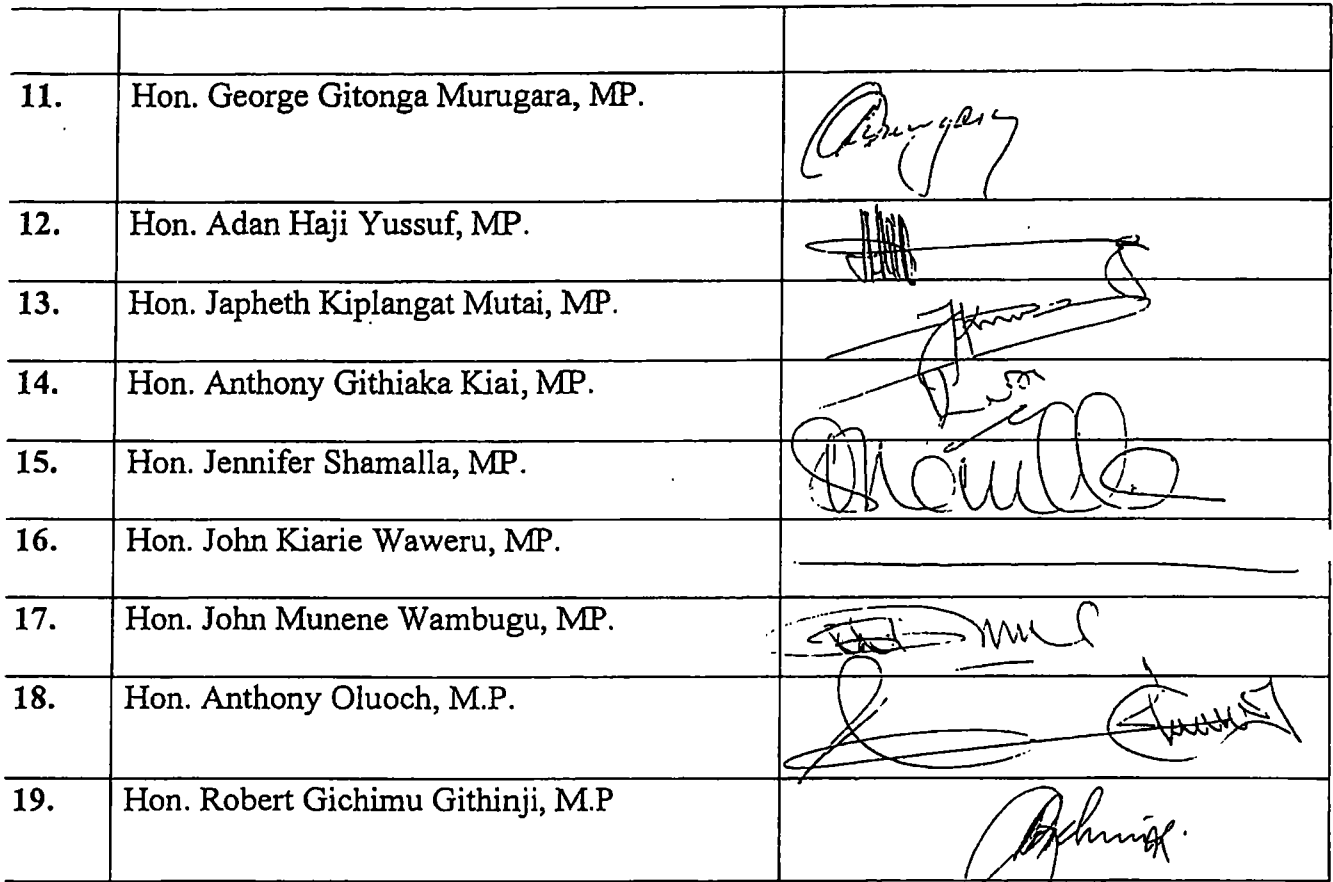 11. Hon. George Gitonga Murugara, MP.
12. Hon. Adan Haji Yussuf, MP.
13. Hon. Japheth Kiplangat Mutai, MP.
14. Hon. Anthony Githiaka Kiai, MP.
15. Hon. Jennifer Shamalla, MP.
16. Hon. John Kiarie Waweru, MP.
17. Hon. John Munene Wambugu, MP.
18. Hon. Anthony Oluoch, M.P.
19. Hon. Robert Gichimu Githinji, M.P